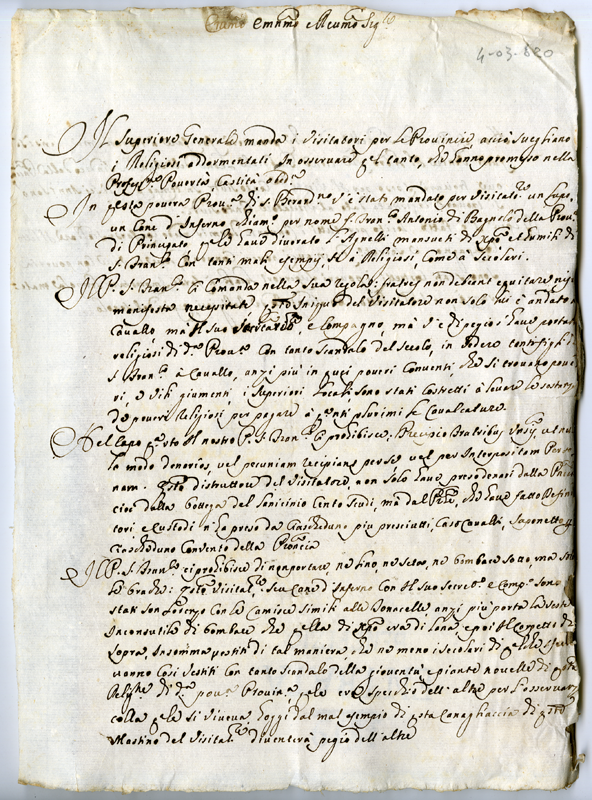 Emmo e Revmo Sigre
4-03-820
Il Superiore Generale manda i Visitatori per le Provincie, acciò sveglian
i Religiosi addormentati in osservare quel tanto, che hanno promesso nella
Profess.e Povertà Castità obed.a
In questa povera Prov.a di S. Berard.no v'è stato mandato per Visitat.re un Lupo,
un Cane d'Inferno chiam.o per nome f. Fran.co Antonio di Bagnolo della Prov.a
di Principato quale have divorato l'Agnelli mansueti di Xpo et humili di
S. Fran.co con tanti mali esempij sì a Religiosi, come a Secolari.
Il P. S. Fran.co ci comanda nella sua regola: fratres non debeant equitare nisi
manifesta necessitate questo iniquo del Visitatore non solo lui è andato a
Cavallo ma il suo e Compagno, ma v'è di peggio have portat
religiosi di d.a Prov.a con tanto scandalo del secolo, in vedere tanti figli di
S. Fran.co a Cavallo, anzi più in quei poveri Conventi che si trovano pov
ri, e vili giumenti i Superiori locali sono stati costretti a levare le sostanze
de poveri Religiosi per pagare a quanti plurimi le Cavalcature.
Nel Capo questo il nostro P. S. Fran.co ci prohibisce: Precipio fratribus ut nul
lo modo denarios, vel pecuniam recipiant per se vel per interpositam Per
nam. questo distruttore del Visitatore, non solo have preso denari dalla Provin
cia dalla bottega del lanicinio Cento Scudi, ma dal P.re che have fatto Defini
tori, e Custodi n'ha preso da ciascheduno più presciutti, Caso Cavalli, saponetto
ciascheduno Convento della Provincia
Il P. S. Fran.co ci prohibisce di non portare, ne lino, ne seta, ne bombace sotto, ma solo
le brache: questo Visitat.re, seu Cane d'Inferno con il suo Secret.o e Comp.o sono
stati con le Camisce simili alle Donacelle anzi più porta la veste
inconsutile di bombace che quella di Xpo era di lana, e poi il corpetto di
sopra, insomma vestiti di tal maniera, che ne meno i secolari di
vanno così vestiti con tanto scandalo della gioventù, e piante novelle di questa
Relig.ne di d.a pov.a Provin.a quale era specchio dell'altre per l'osservanza
colla quale si viveva, hoggi dal mal esempio di questa Canagliaccia di questo
Mastino del Visitat.re diventerà pegio dell'altre